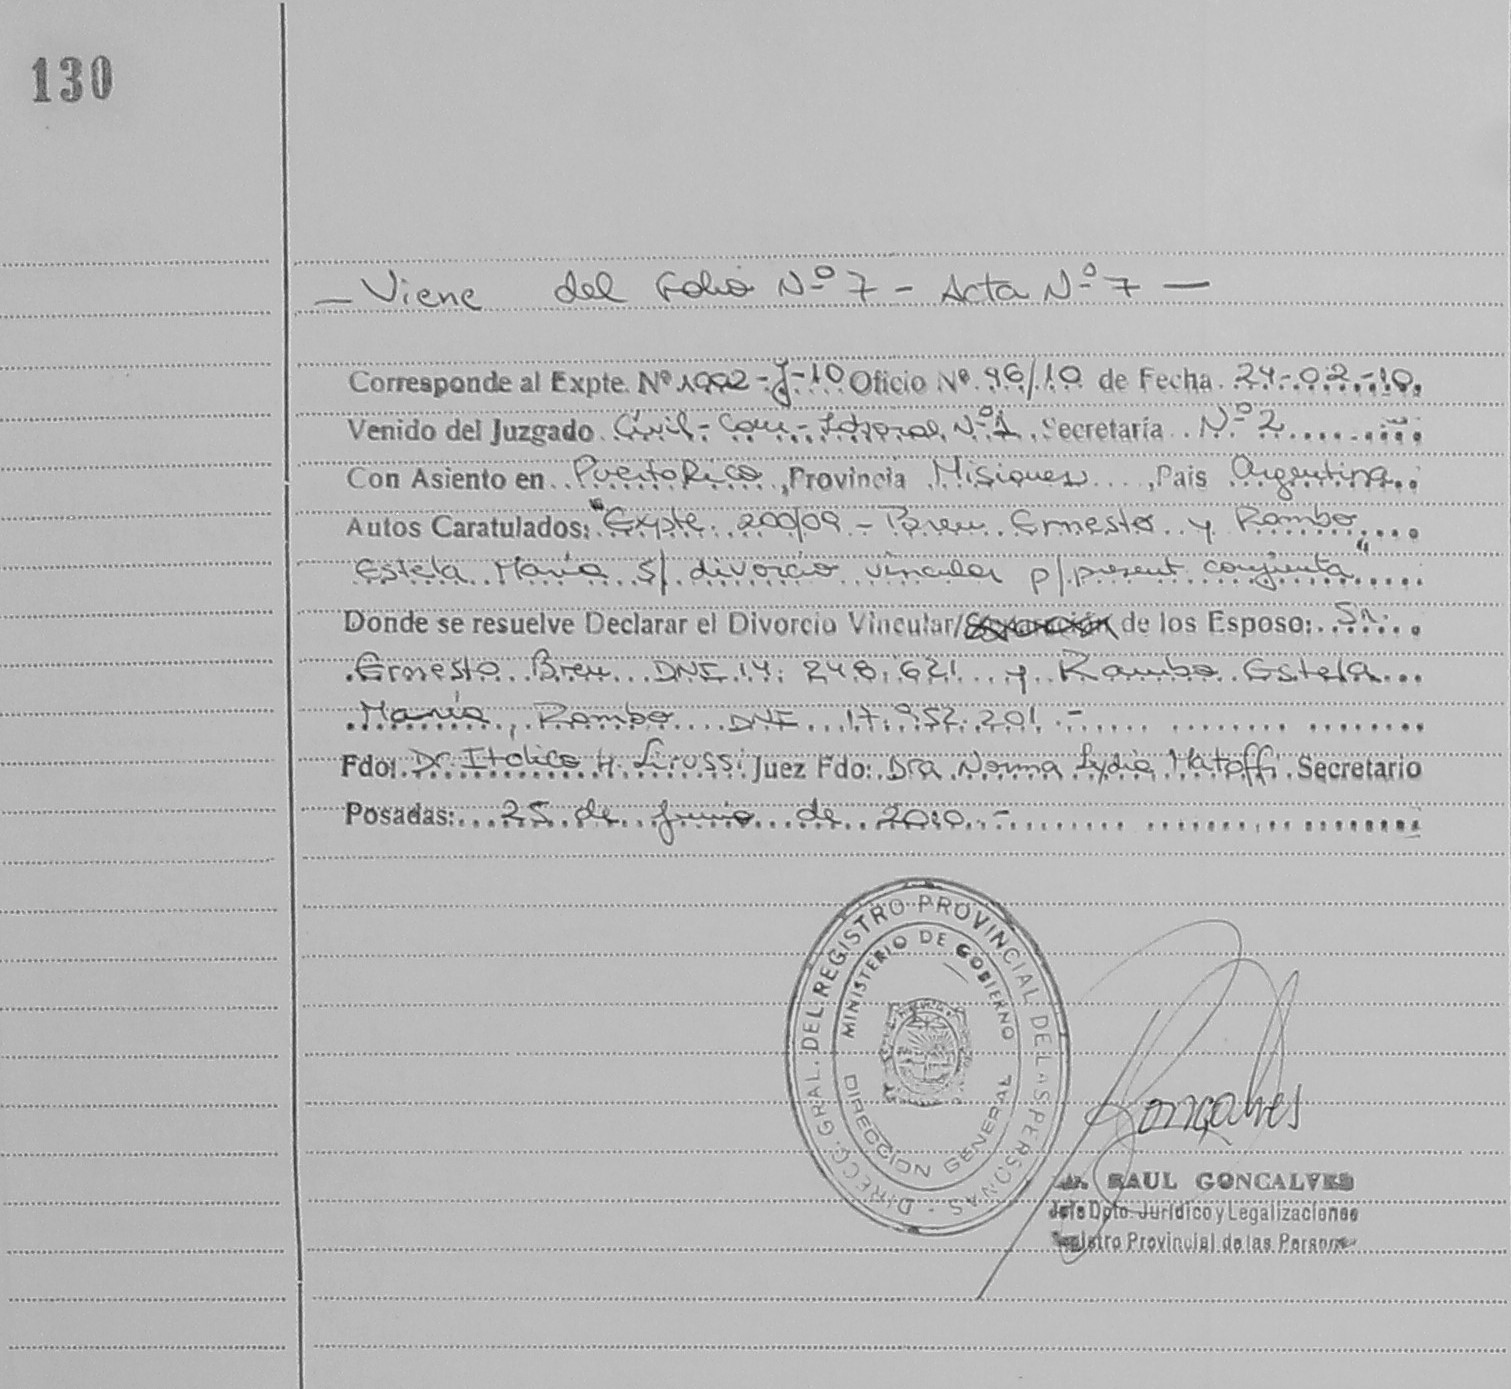 130
- Viene del Folio Nº 7 - Acta Nº 7 -
Corresponde al Expte. Nº 1992-J-10 Oficio Nº 96/10 de Fecha 24-02-10.
Venido del Juzgado Civil-Com-Laboral Nº 1 Secretaría Nº 2
Con Asiento en Puerto Rico, Provincia Misiones, País Argentina
Autos Caratulados: "Expte. 200/09 - Breu Ernesto y Rambo
Estela María S/ divorcio vincular p/present. conjunta"
Donde se resuelve Declarar el Divorcio Vincular/ de los Esposo: Sr.
Ernesto Breu DNI 14.248.621 y Rambo Estela
María, Rambo DNI 17.952.201.-
Fdo: Dr. Italico H. Juez Fdo: Dra Norma Lydia Matoffi Secretario
Posadas: 25 de Junio de 2010.-
DIRECC. GRAL. DEL REGISTRO PROVINCIAL DE LAS PERSONAS
MINISTERIO DE GOBIERNO
DIRECCION GENERAL
Gonçalves
RAUL GONCALVES
Jefe Dpto. Jurídico y Legalizaciones
Registro Provincial de las Personas